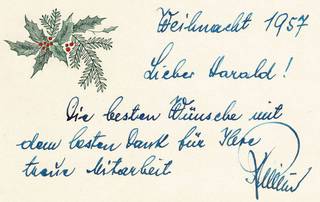 Weihnacht 1957
Lieber Harald!
Die besten Wünsche mit
dem besten Dank für Ihre
treue Mitarbeit